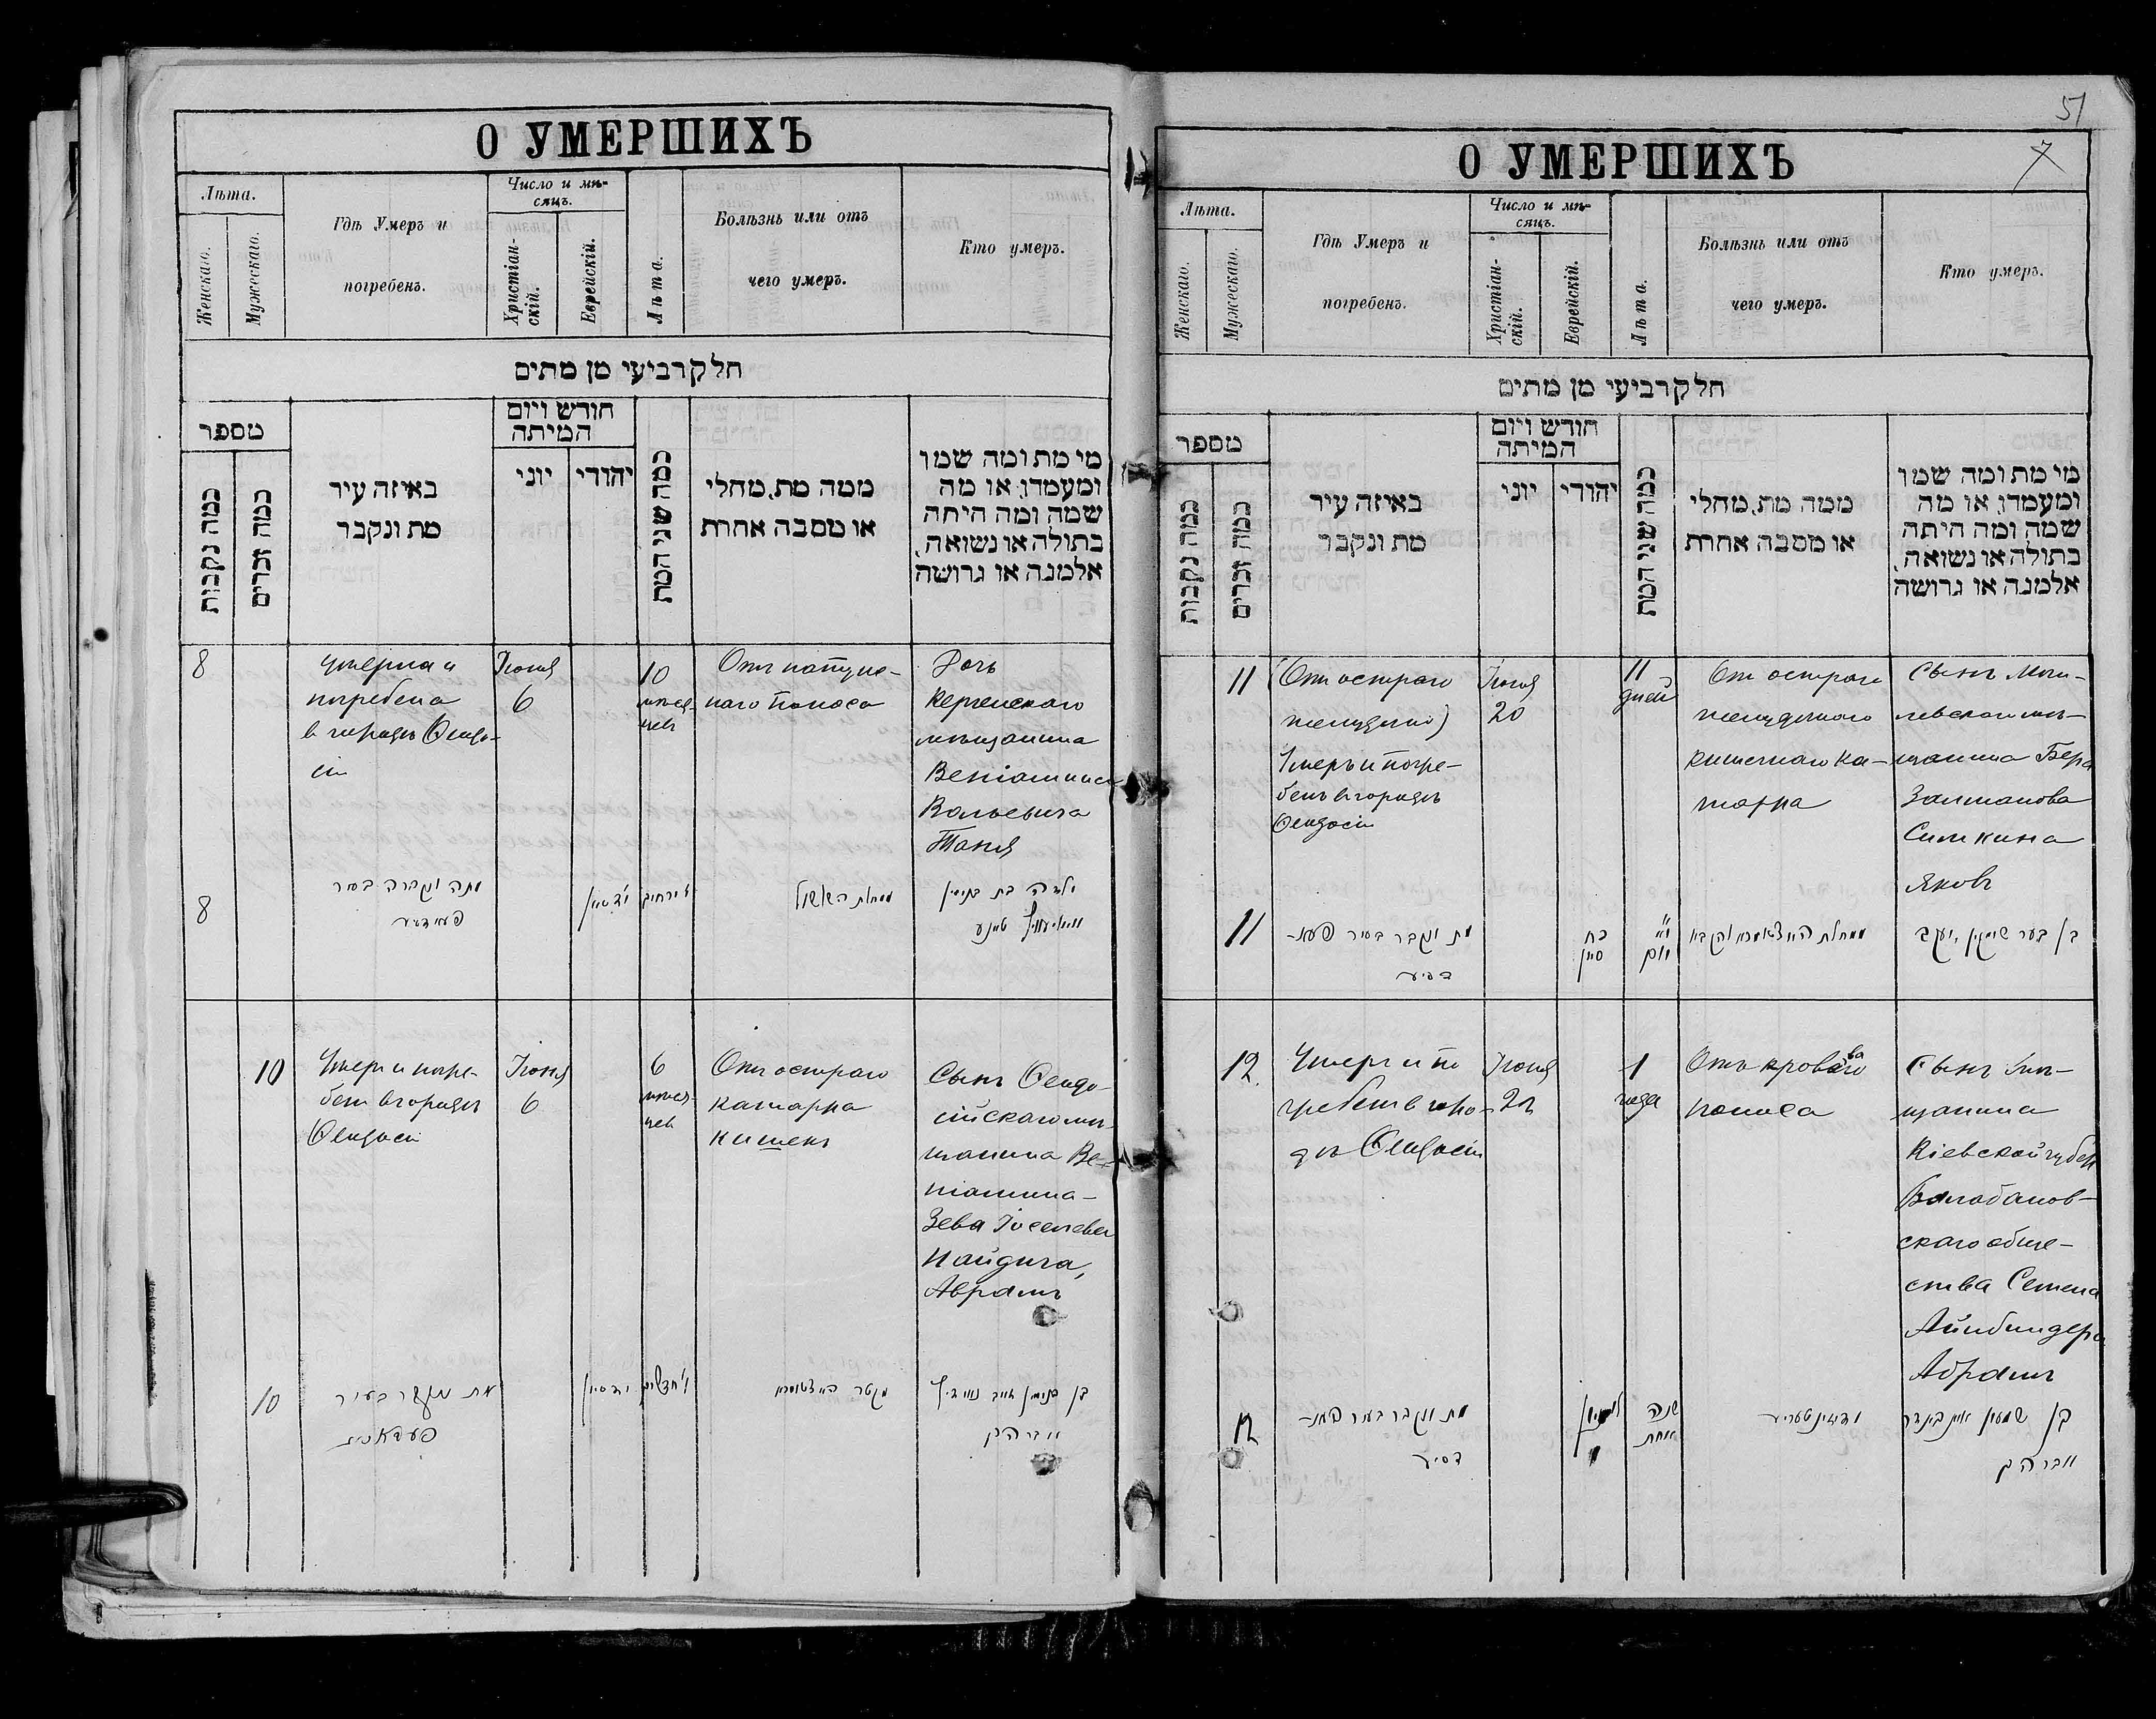 О УМЕРШИХЪ
Лѣта.
Женскаго.
Мужескаго.
Гдѣ Умеръ и
погребенъ.
Число и мѣ-
сяцъ.
Христіан-
скій.
Еврейскій.
Лѣта.
Болѣзнь или отъ
чего умеръ.
Кто умеръ.
חלק רביעי מן מתים
מספר
כמה נקבות
כמה זכרים
באיזה עיר
מת ונקבר
חודש ויום
המיתה
יוני
יהודי
כמה שני המת
ממה מת, מחלי
או מסבה אחרת
מי מת ומה שמו
ומעמדו, או מה
שמה ומה היתה
בתולה או נשואה,
אלמנה או גרושה
8
умерла и
погребена
в городѣ Ѳеодо-
сіи
Іюня
6
10
мѣся-
цев
Отъ
наго поноса
Дочь
мѣщанина
Веніамина
Вольевича
Таня
8
מתה ונקברה בעיר
בת בנימין
10
Умеръ и погре-
бенъ в городѣ
Ѳеодосіи
Іюня
6
6
мѣся-
цев
Отъ остраго
катарра
кишекъ
Сынъ Ѳеодо-
сійскаго мѣ-
щанина Ве-
ніамина-
Зева Іоселева
Найдича,
Абрамъ
10
מת ונקבר בעיר
בן בנימין זאב
אברהם
51
7
О УМЕРШИХЪ
Лѣта.
Женскаго.
Мужескаго.
Гдѣ Умеръ и
погребенъ.
Число и мѣ-
сяцъ.
Христіан-
скій.
Еврейскій.
Лѣта.
Болѣзнь или отъ
чего умеръ.
Кто умеръ.
חלק רביעי מן מתים
מספר
כמה נקבות
כמה זכרים
באיזה עיר
מת ונקבר
חודש ויום
המיתה
יוני
יהודי
כמה שני המת
ממה מת, מחלי
או מסבה אחרת
מי מת ומה שמו
ומעמדו, או מה
שמה ומה היתה
בתולה או נשואה,
אלמנה או גרושה
11
(Отъ остраго
желудочно)
Умеръ и погре-
бенъ в городѣ
Ѳеодосіи
Іюня
20
11
дней
Отъ остраго
желудочнаго
кишечнаго ка-
тарра
Сынъ Моги-
левскаго мѣ-
щанина Бера
Залманова
Симкина
Яковъ
11
מת ונקבר בעיר פעא-
דסיע
כח
סיון
י"א
יום
בן בער שימקין, יעקב
12.
Умеръ и по
гребенъ в горо-
дѣ Ѳеодосіи
Іюня
22
1
года
Отъ кроваваго
поноса
Сынъ мѣ-
щанина
Кіевской губерн
Балабанов-
скаго обще-
ства Семена
Айнбиндера
Абрамъ
12
מת ונקבר בעיר פעא-
דסיע
שנה
אחת
בן שמעון איינבינדר
אברהם